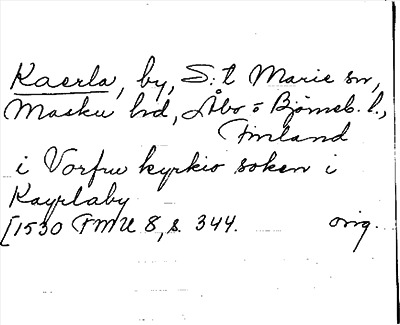 Kaerla, by, S:t Marie sn,
Masku hd, Åbo o Björneb. l.,
Finland
i Vorfru kyrkio soken i
Kayrlaby
[1530 FMU 8, s. 344. orig.